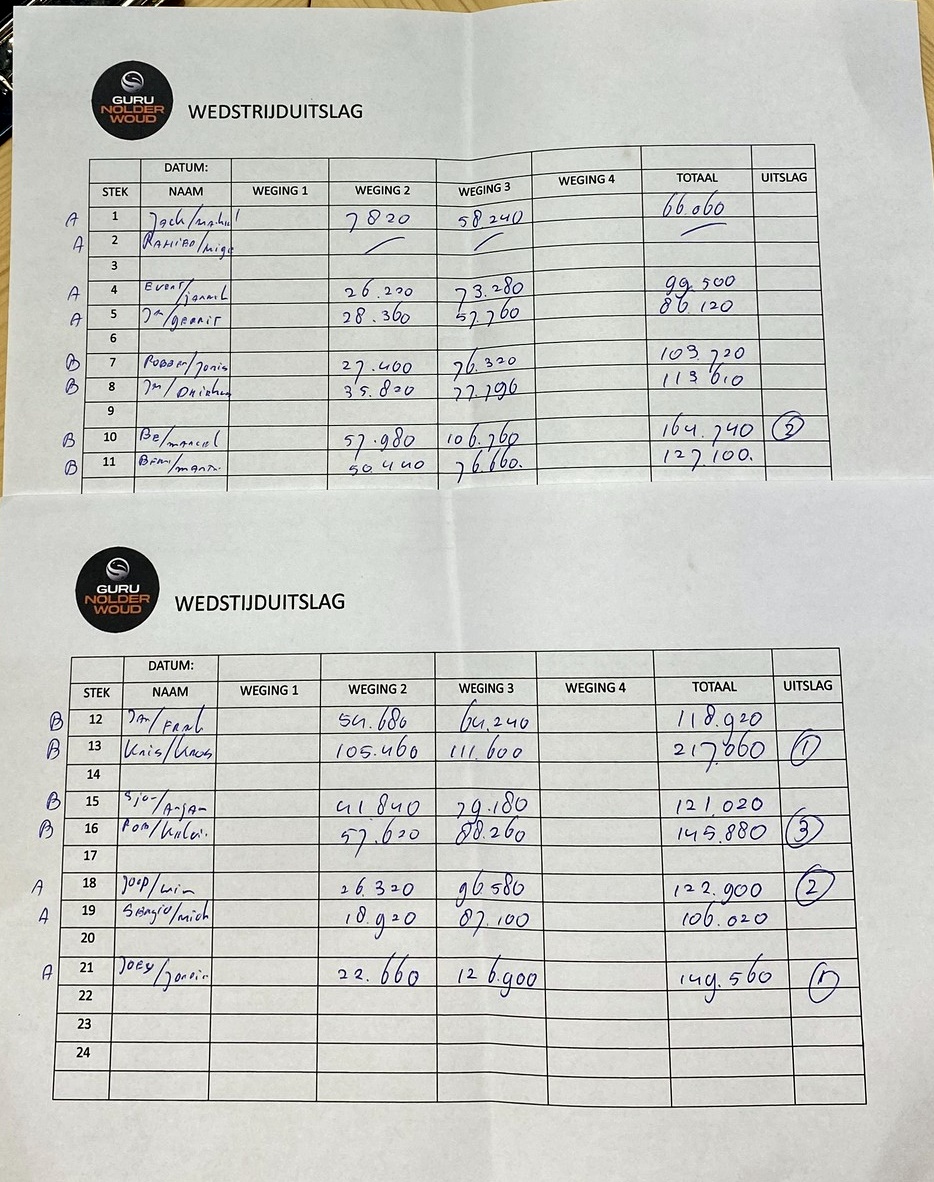 GURU
NOLDER
WOUD
WEDSTRIJDUITSLAG
DATUM:
STEK NAAM WEGING 1 WEGING 2 WEGING 3 WEGING 4 TOTAAL UITSLAG
A 1 7820 58240 66.060
A 2
3
A 4 26.220 73.280 99.500
A 5 28.360 57.760 86.120
6
B 7 27.400 76.320 103.720
B 8 35.820 77.790 113.610
9
B 10 Be/marcel 57.980 106.760 164.740 2
B 11 50440 76.660. 127.100.
GURU
NOLDER
WOUD
WEDSTIJDUITSLAG
DATUM:
STEK NAAM WEGING 1 WEGING 2 WEGING 3 WEGING 4 TOTAAL UITSLAG
B 12 54.680 64.240 118.920
B 13 105.460 111.600 217.060 1
14
B 15 41.840 79.180 121.020
B 16 57.620 88.260 145.880 3
17
A 18 Joop/wim 26.320 96580 122.900 2
A 19 18.920 87.100 106.020
20
A 21 22.660 126.900 149.560 1
22
23
24